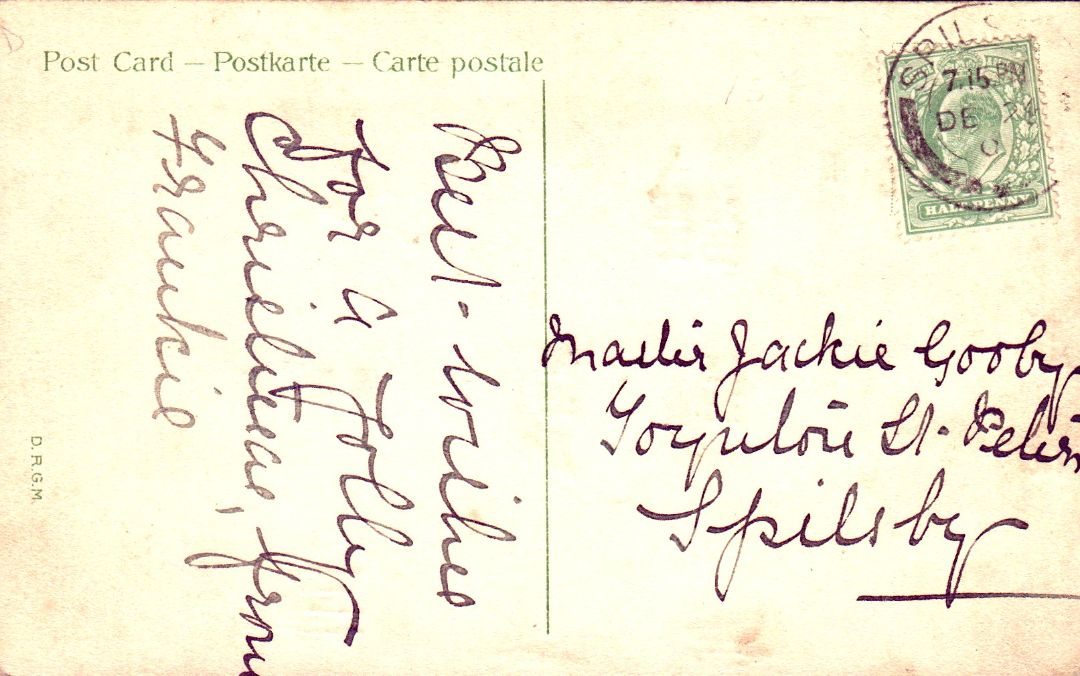 Post Card – Postkarte – Carte postale
Best-wishes
for a Jolly
Christmas, from
Frankie
D.R.G.M.
SPILS
7.15 PM
DE 24
HALFPENNY
Master Jackie Gooby
Toynton St. Peters
Spilsby